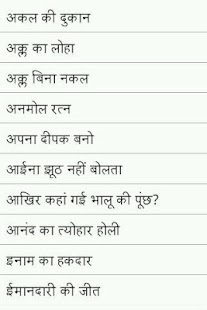 अकल की दुकान
अक्ल का लोहा
अक्ल बिना नकल
अनमोल रत्न
अपना दीपक बनो
आईना झूठ नहीं बोलता
आखिर कहां गई भालू की पूंछ?
आनंद का त्योहार होली
इनाम का हकदार
ईमानदारी की जीत